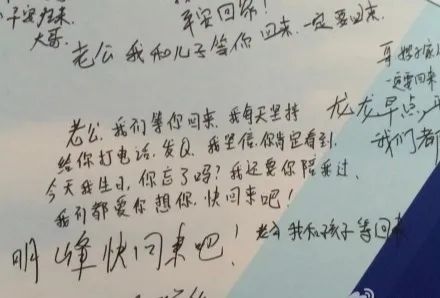 平安回家!
大哥.
老公 我和儿子等你回来.一定要回来.
一定要回来
龙龙早点
我们都
老公.我们等你回来.我每天坚持
给你打电话,发Q.我坚信你肯定看到.
今天我生日,你忘了吗?我还要你陪我过.
我们都爱你 想你.快回来吧!
明峰快回来吧!
老公 我和孩子等回来